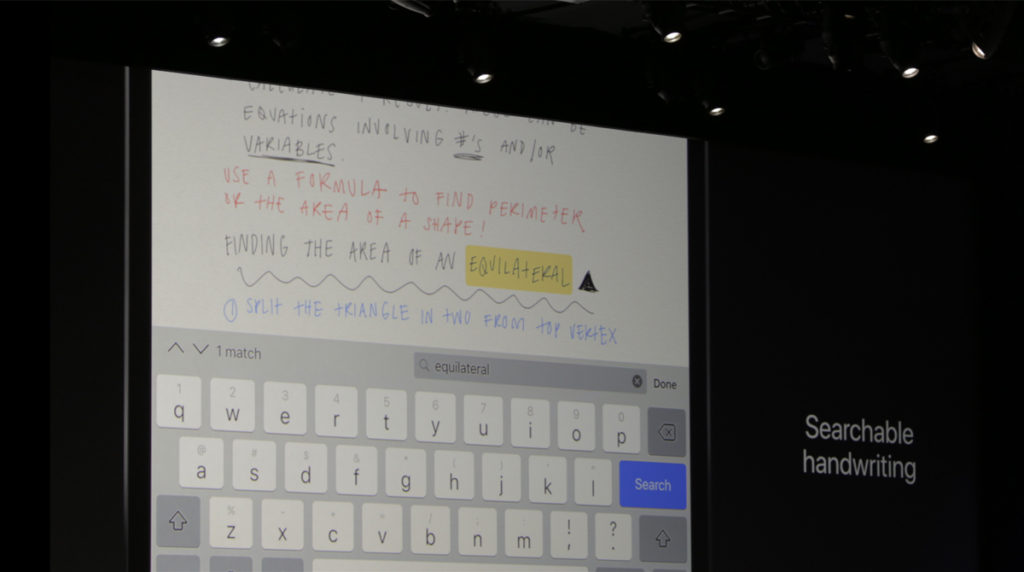 EQUATIONS INVOLVING #'S AND/OR
VARIABLES.
USE A FORMULA TO FIND PERIMETER
OR THE AREA OF A SHAPE!
FINDING THE AREA OF AN EQUILATERAL
① SPLIT THE TRIANGLE IN TWO FROM TOP VERTEX
1 match
equilateral
Done
1 2 3 4 5 6 7 8 9 0
q w e r t y u i o p
a s d f g h j k l
Search
z x c v b n m ! , ? .
Searchable
handwriting